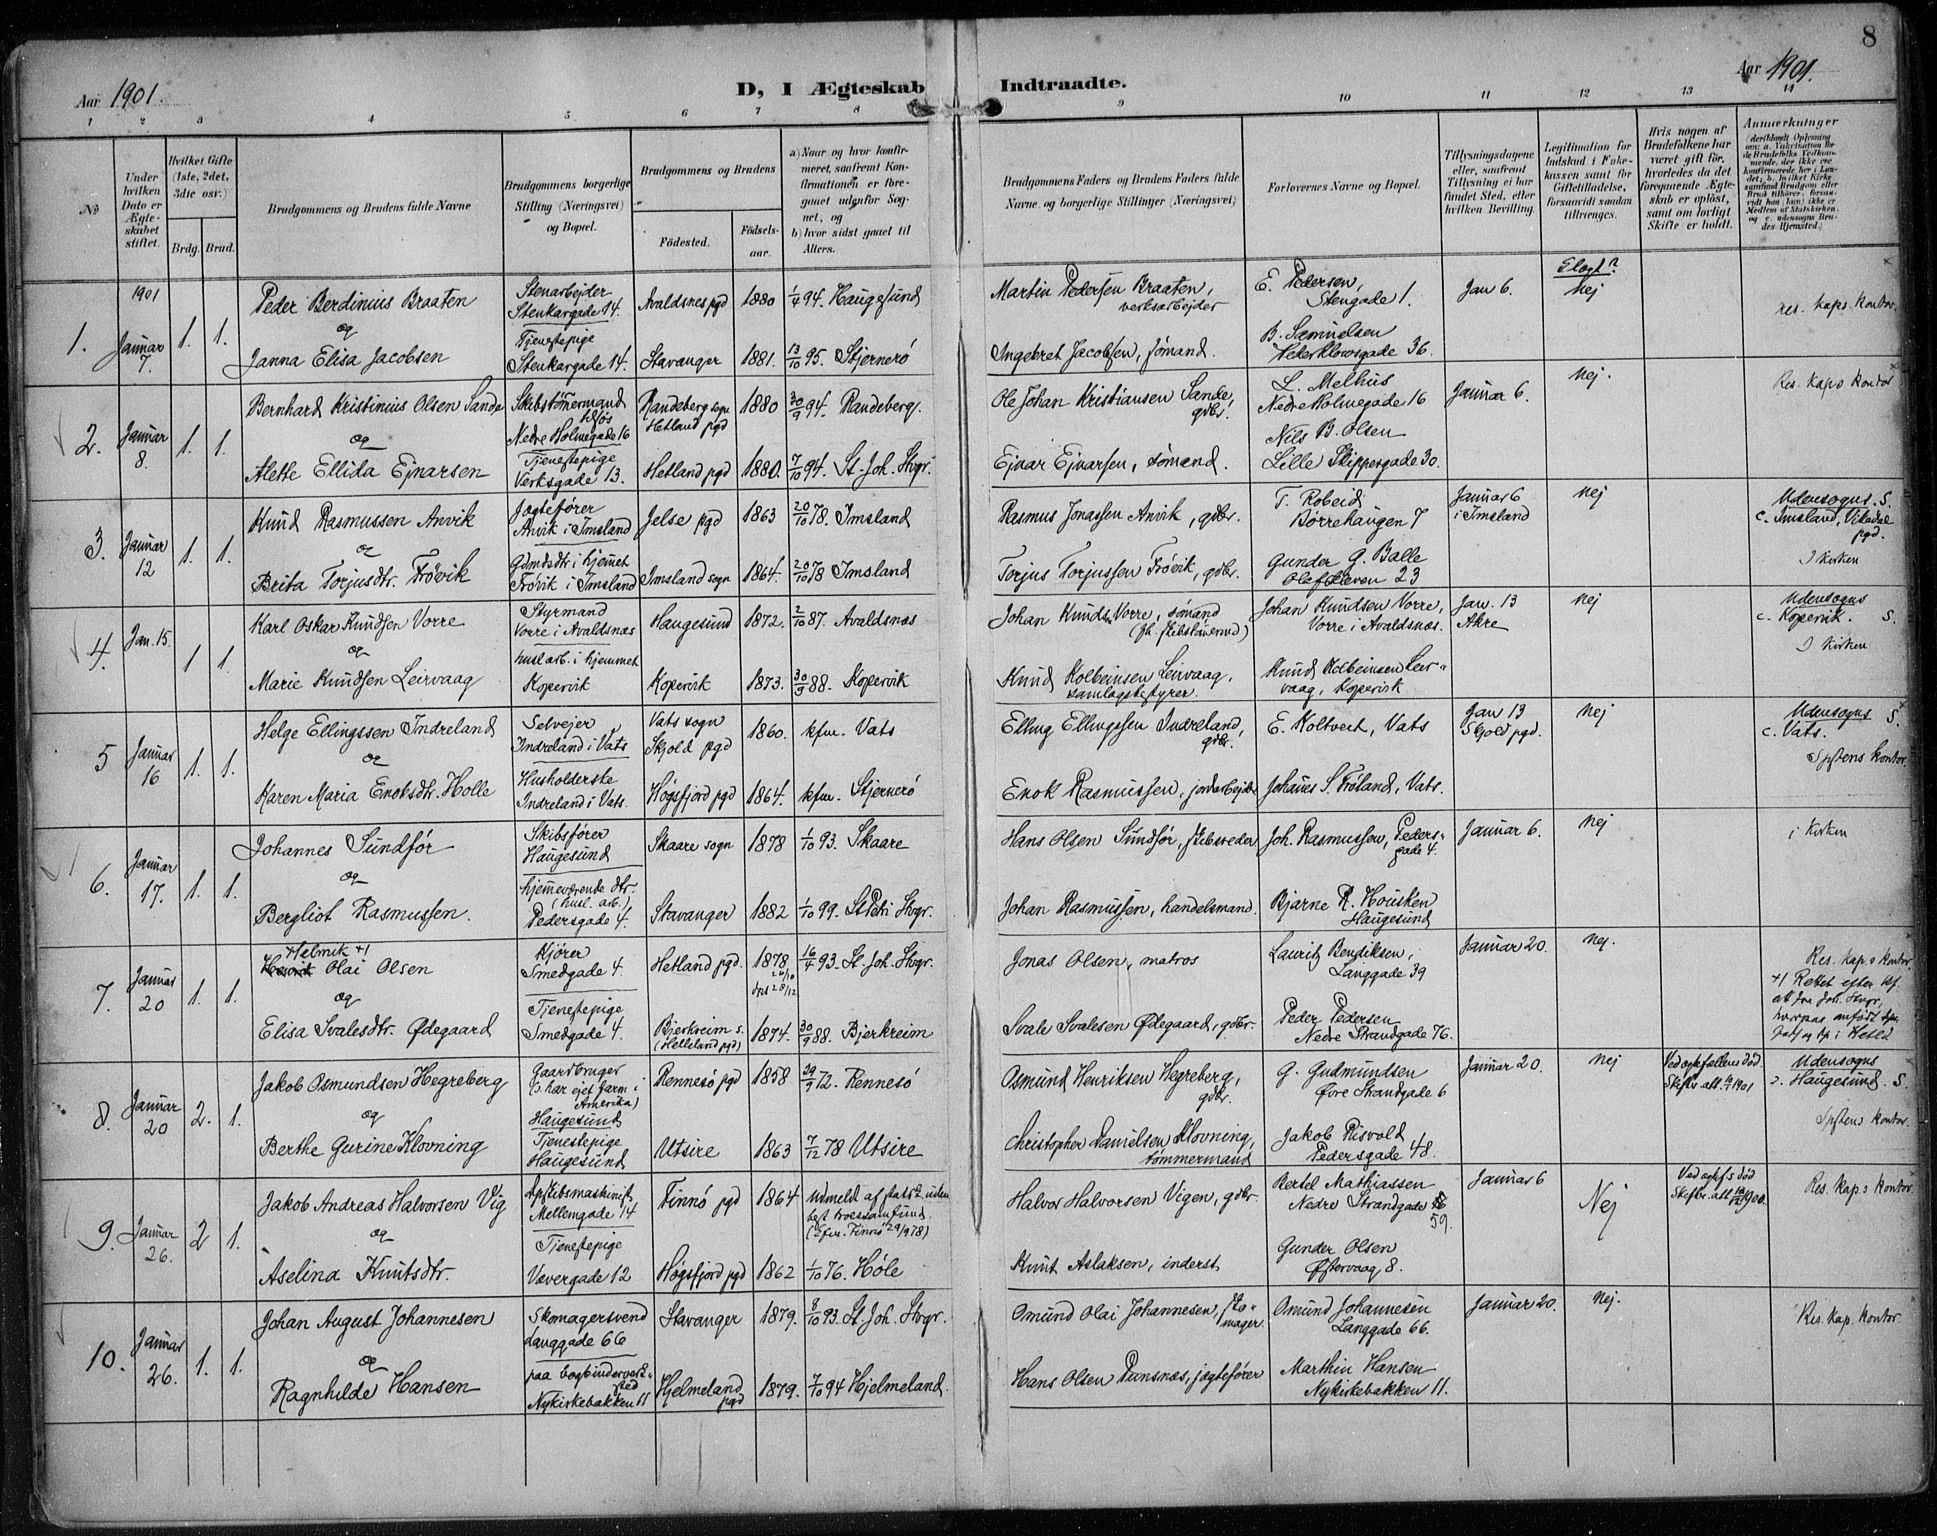 8
Aar 1901.
D, I Ægteskab Indtraadte.
Aar 1901.
1 2 3 4 5 6 7 8 9 10 11 12 13 14
No
Under hvilken Dato er Ægteskabet stiftet.
Hvilket Gifte (1ste, 2det, 3die osv.)
Brdg. Brud.
Brudgommens og Brudens fulde Navne
Brudgommens borgerlige Stilling (Næringsvei) og Bopæl.
Brudgommens og Brudens
Fødested.
Fødselsaar.
a) Naar og hvor konfirmeret, saafremt Konfirmationen er foregaaet udenfor Sognet, og
b) hvor sidst gaaet til Alters.
Brudgommens Faders og Brudens Faders fulde Navne, og borgerlige Stillinger (Næringsvei)
Forlovernes Navne og Bopæl.
Tillysningsdagene eller, saafremt Tillysning ei har fundet Sted, efter hvilken Bevilling.
Legitimation for Indskud i Enkekassen samt for Giftetilladelse, forsaavidt saadan tiltrænges.
Hvis nogen af Brudefolkene har været gift før, hvorledes da det foregaaende Ægteskab er opløst, samt om lovligt Skifte er holdt.
Anmærkninger
1.
1901
Januar 7.
1. 1.
Peder Berdinius Braaten
og
Janna Elisa Jacobsen
Stenarbejder
Stenkargade 14.
Tjenestepige
Stenkargade 14.
Avaldsnes pgd 1880 1/4 94. Haugesund
Stavanger 1881. 13/10 95. Stjernerö
Martin Pedersen Braaten,
verksarbejder
Ingebret Jacobsen, sömand.
E. Pedersen,
Stengade 1.
B. Samuelsen
Pederklowsgade 36.
Jan 6.
Slægt?
Nej
res. kaps. kontor.
2.
Januar 8.
1. 1.
Bernhard Kristinius Olsen Sande
og
Alette Ellida Ejnarsen
Skibstömermand
Nedre Holmegade 16
Tjenestepige
Verksgade 13.
Randeberg sogn
Hetland pgd
1880 30/9 94. Randeberg.
Hetland pgd 1880. 7/10 94. St. Joh. Stvgr.
Ole Johan Kristiansen Sande,
gdbr.
Ejnar Ejnarsen, sömand.
L. Melhus
Nedre Holmegade 16
Nils B. Olsen
Lille Skippergade 30.
Januar 6.
Nej.
Res. kaps kontor
3.
Januar 12
1. 1.
Knud Rasmussen Anvik
og
Brita Torjusdtr. Frövik
Jægtefører
Anvik i Imsland
Gdmdsdtr. i hjemet
Frövik i Imsland
Jelse pgd 1863 20/10 78. Imsland
Imsland sogn 1864. 20/10 78 Imsland
Rasmus Jonassen Anvik, gdbr.
Torjus Torjussen Frövik, gdbr.
T. Robeid
Börrehaugen 7
Gunder G. Balle
Olafskleven 23
Januar 6
i Imsland
Nej
Udensogns. S.
c. Imsland, Vikedal pgd.
I kirken
4.
Jan. 15.
1 1.
Karl Oskar Knudsen Vorre
og
Marie Knudsen Leirvaag
Styrmand
Vorre i Avaldsnæs
husl. arb. i hjemmet
Kopervik
Haugesund 1872. 2/10 87. Avaldsnæs
Kopervik 1873. 30/9 88. Kopervik
Johan Knudsn Vorre, sömand
Knud Kolbeinsen Leirvaag,
samlagsbestyrer.
Johan Knudsen Vorre,
Vorre i Avaldsnæs.
Knud Kolbeinsen Leirvaag, Kopervik
Jan. 13
Akre
Nej
Udensogns
c. Kopervik. S.
I kirken
5
Januar 16
1. 1.
Helge Ellingssen Indreland
og
Karen Maria Enoksdtr. Holle
Selvejer
Indreland i Vats
Husholderske
Indreland i Vats.
Vats sogn
Skjold pgd
1860. kfm. Vats
Högsfjord pgd 1864. kfm. Stjernerö
Elling Ellingssen Indreland,
gdbr.
Enok Rasmussen, jordarbejder
E. Koltvert, Vats
Johanes S. Fröland, Vats.
Jan 13
Skjold pgd.
Nej
Udensogns S.
c. Vats.
Spstens kontor.
6.
Januar 17.
1. 1.
Johannes Sundför
og
Bergliot Rasmussen.
Skibsfører
Haugesund
hjemeværende dtr.
(husl. arb.)
Pedersgade 4.
Skaare sogn 1878 1/10 93. Skaare
Stavanger 1882 1/10 99. St Petri Stvgr.
Hans Olsen Sundför, skibsreder
Johan Rasmussen, handelsmand.
Joh. Rasmussen, Pedersgade 4.
Bjarne R. Housken
Haugesund
Januar 6.
Nej
i Kirken
7.
Januar 20
1. 1.
+Helmik +1
Henrik Olai Olsen
og
Elisa Svalesdtr. Ødegaard
Kjører
Smedgade 4.
Tjenestepige
Smedgade 4.
Hetland pgd. 1878 26/10 dpt 28/12 16/4 93. St. Joh. Stvgr.
Bjerkreim s.
(Helleland pgd) 1874. 30/9 88. Bjerkreim
Jonas Olsen, matros
Svale Svalesen Ødegaard, gdbr.
Lauritz Bendiksen,
Langgade 39
Peder Pedersen
Nedre Strandgade 76.
Januar 20.
Nej.
Res. Kap.s kontor.
+1 Rettet efter kf.
att fra Joh. Stvgr,
8.
Januar 20
2. 1.
Jakob Osmundsen Hegreberg
og
Berthe Gurine Klovning
Gaardbruger
(o: har ejet farm i Amerika)
Haugesund
Tjenestepige
Haugesund
Rennesö pgd 1858 29/9 72. Rennesö
Utsire 1863 7/12 78 Utsire
Osmund Henriksen Hegreberg,
gdbr.
Christopher Danielsen Klovning,
tømmermand
G. Gudmundsen
Øvre Strandgade 6
Jakob Risvold
Pedersgade 48.
Januar 20.
Nej
Ved ægtefællens död
Skiftebr. att. 1901
Udensogns
c. Haugesund. S.
Spstens kontor.
9.
Januar 26.
2 1.
Jakob Andreas Halvorsen Vig
og
Aselina Knutsdtr.
Dpskibsmaskinist
Mellemgade 14
Tjenestepige
Vævergade 12
Finnö pgd 1864 Udmeldt af statsk. uden
best. troessamfund.
(Efter. Finnö 29/9 78)
Högsfjord pgd 1862 1/10 76. Höle
Halvor Halvorsen Vigen, gdbr.
Knut Aslaksen, inderst
Bertel Mathiassen
Nedre Strandgade
59.
Gunder Olsen
Østervaag 8.
Januar 6
Nej
Ved ægtefs död
Skiftebr. att. 1900.
Res. Kap.s kontor
10.
Januar 26.
1. 1.
Johan August Johannesen
og
Ragnhilde Hansen
Skomagersvend
Langgade 66
paa bogbinderverksted
Nykirkebakken 11
Stavanger 1879. 8/10 93. St. Joh. Stvgr.
Hjelmeland pgd 1879. 7/10 94 Hjelmeland.
Omund Olai Johannesen, skomager.
Hans Olsen Punsnæs, jægtefører
Omund Johannesen
Langgade 66.
Marthin Hansen
Nykirkebakken 11.
Januar 20.
Nej.
Res. kap. kontor.